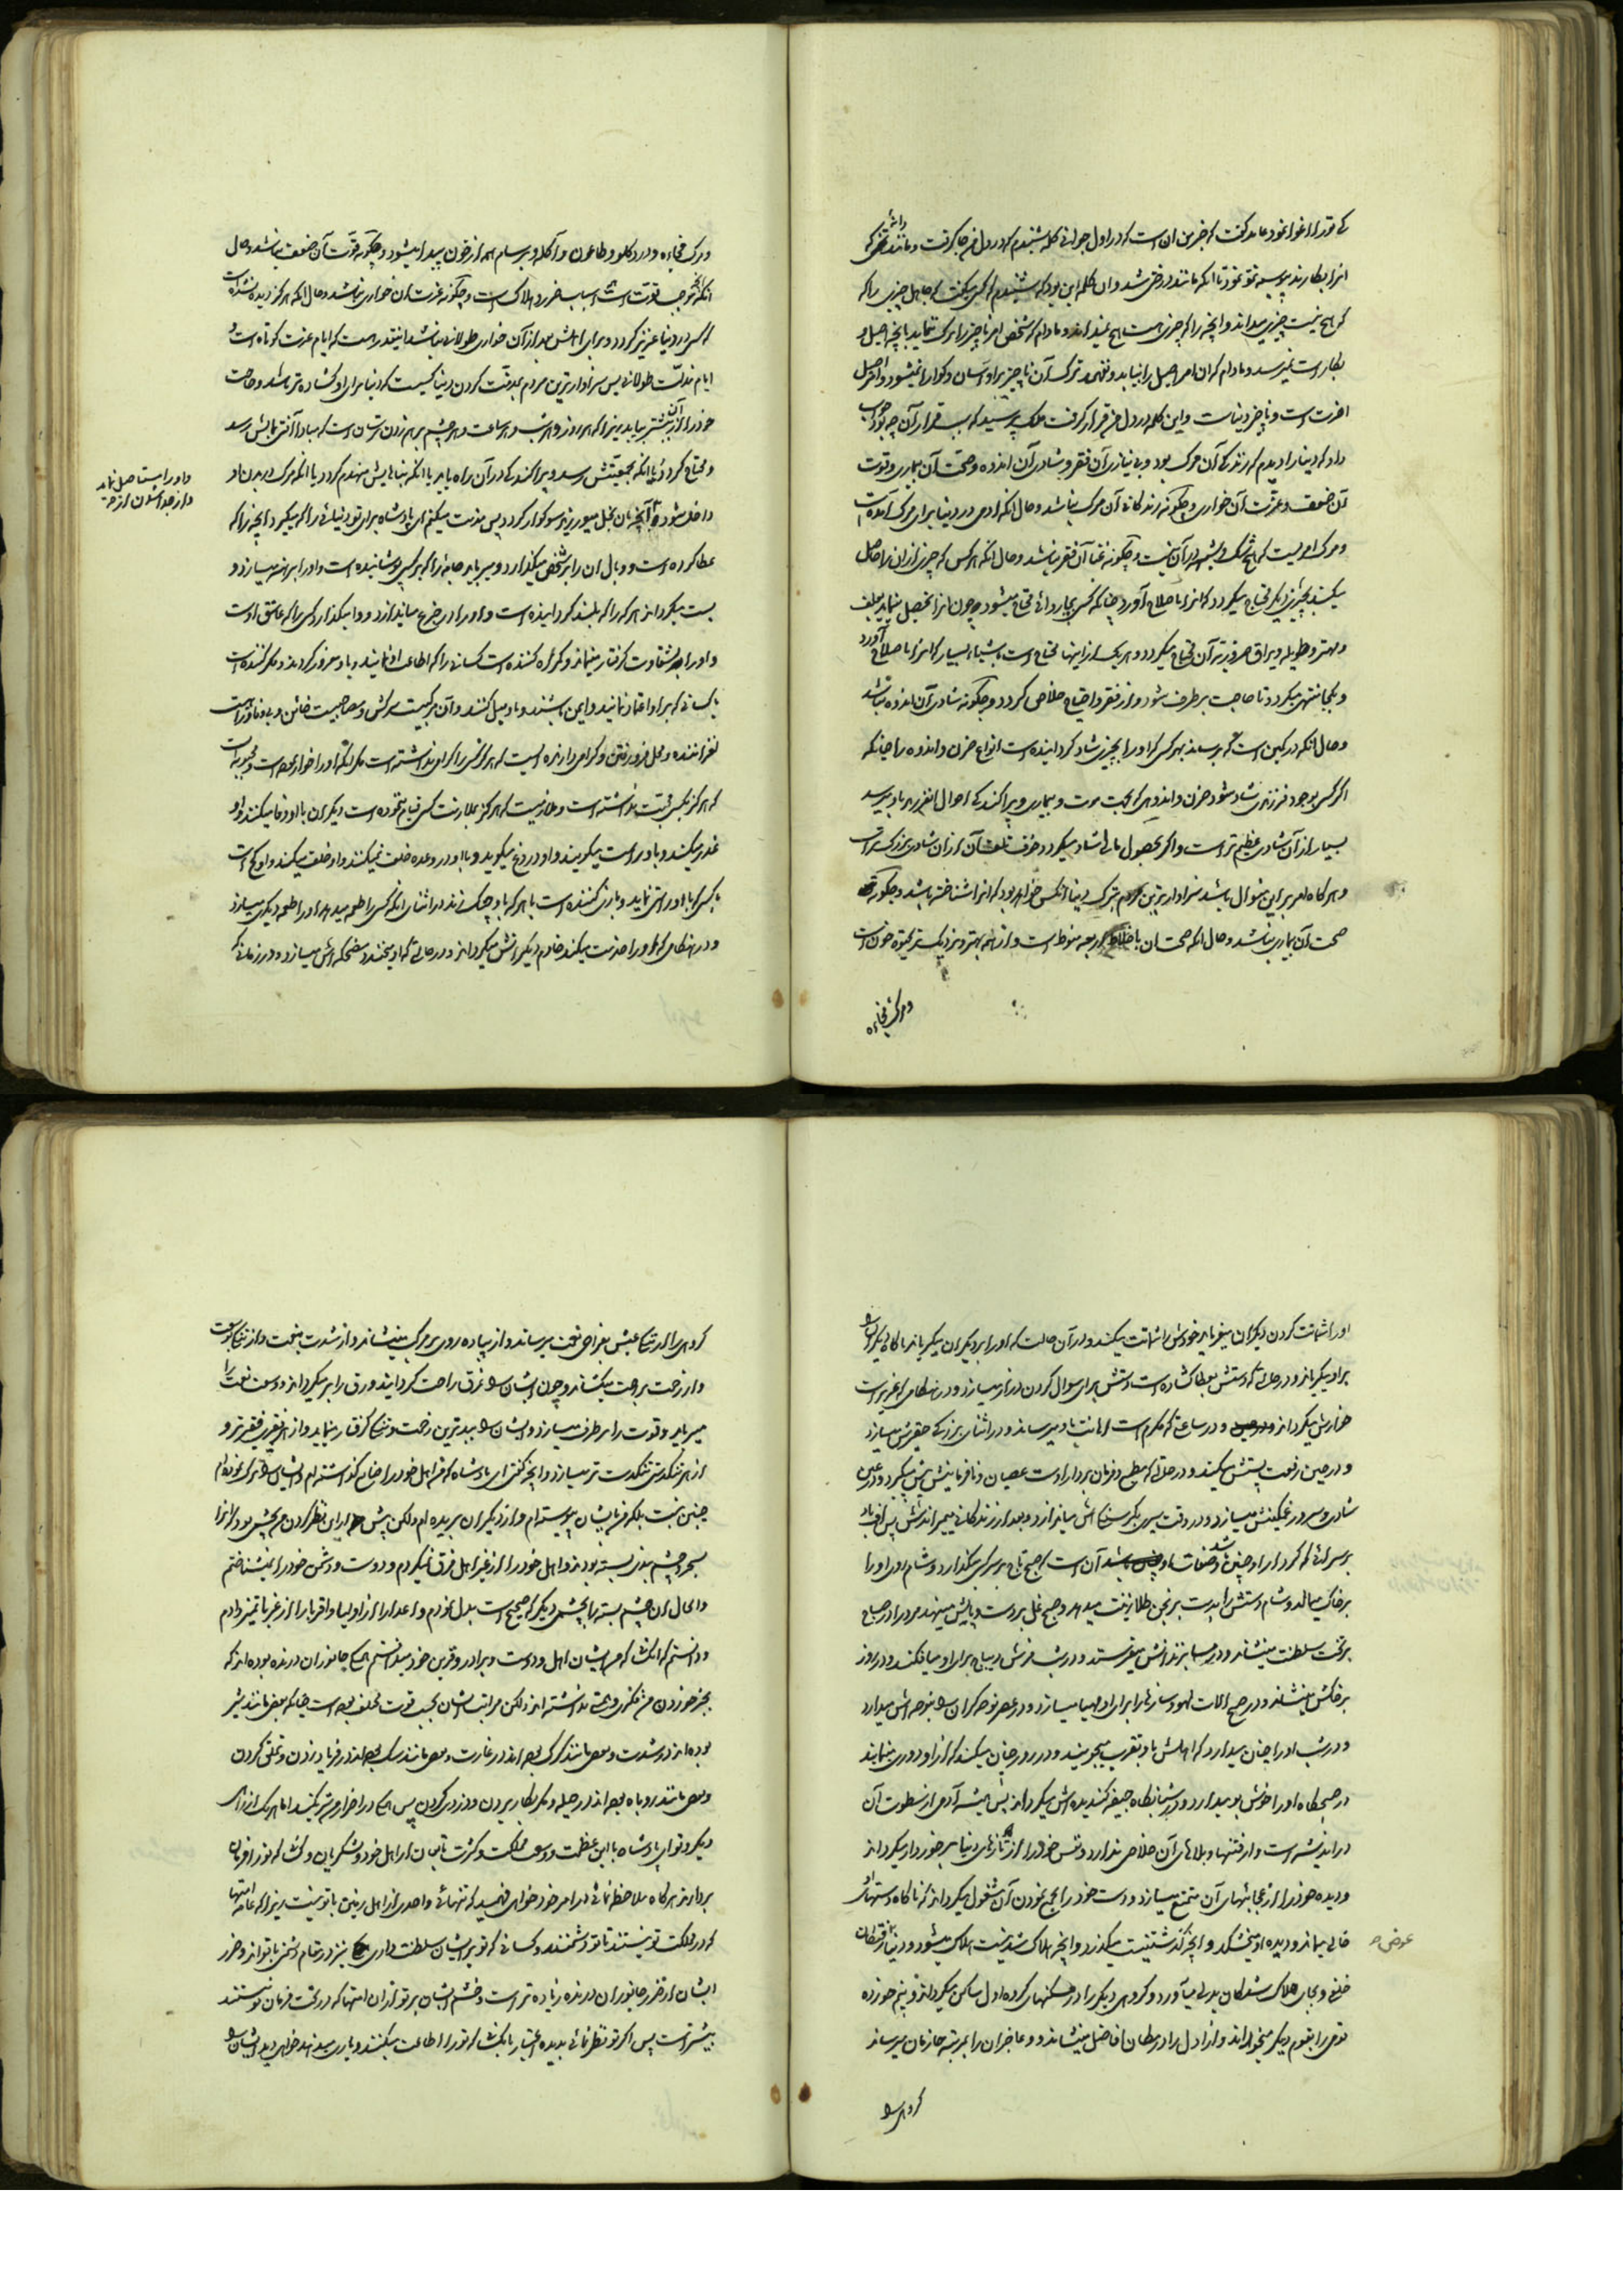 که ترا اغوا نمود عابد گفت که خبر من آن است که در اول جوانی کلمه شنیدم که در دل من جا گرفت و مانند دانه تخمی که
انرا بکارند پیوسته نمو نمود تا انکه مانند درختی شد و ان کلمه این بود که شنیدم که کسی میگفت که جاهل چیزی را که
که هیچ نیست چیزی میداند و انچه را که چیزی هست هیچ میداند و مادام که شخص امر ناچیز را ترک ننماید بانچه اصیل و
بکار است نمیرسد و مادام که ان امر اصیل را نیابد و نفهمد ترک آن ناچیز بر او آسان و گوارا نمیشود و امر اصیل
اخرت است و ناچیز دنیاست و این کلمه در دل من قرار گرفت ملک پرسید که سبب قرار آن چه بود جواب
داد که دنیا را دیدم که زندگی آن مرگ بود و بی نیازی آن فقر و شادی آن اندوه و صحت آن بیماری و قوت
آن ضعف و عزت آن خواری و چگونه زندگانی آن مرگ نباشد و حال انکه ادمی در دنیا برای مرگ آمده است
و مرگ امریست که هیچ شک و شبهه در آن نیست و چگونه غنا آن فقر نباشد و حال انکه هر کس که چیزی از ان را حاصل
میکند بچیزی دیگر محتاج میگردد که انرا باصلاح آورد چنانکه کسی بچاروائی محتاج میشود و چون انرا تحصیل مینماید بعلف
و مهتر و طویله و یراق ضروریه آن محتاج میگردد و هر یک از اینها محتاج است باشیاء بسیار که انرا باصلاح آورد
و بکجا منتهی میگردد تا حاجت برطرف شود و از فقر و احتیاج خلاص گردد و چگونه شادی آن اندوه نباشد
و حال انکه در کمین است که برساند بهر کس که او را بچیزی شاد گردانیده است انواع حزن و اندوه را چنانکه
اگر کسی بوجود فرزندی شاد شود حزن و اندوهی که بجهت موت و بیماری و پراکندگی احوال انفرزند باو میرسد
بسیار از آن شادی عظیم تر است و اگر بحصول مالی شاد میگردد خوف تلف آن از ان شادی بزرگتر است
و هر گاه امر بر این منوال باشد سزاوار ترین مردم بترک دنیا انکس خواهد بود که انرا شناخته باشد و چگونه
صحت آن بیماری نباشد و حال انکه صحت ان باخلاط اربعه منوط است و از همه بهتر و نزدیکتر بحیوة خون است
و مرگ فجاءه
و مرگ فجاءه و درد گلو و طاعون و آکله و برسام همه از خون پیدا میشود و چگونه قوت آن ضعف نباشد و حال
انکه انچه موجب قوت است همه اسباب ضرر و هلاک است و چگونه عزت ان خواری نباشد و حال انکه هرگز دیده نشده است
که کسی در دنیا عزیز گردد و برای اهلش بعد از آن خواری طولانی نباشد اینقدر هست که ایام عزت کوتاه است
ایام مذلت طولانی پس سزاوار ترین مردم بمذمت کردن دنیا کسیست که دنیا برای او گشاده تر باشد و حاجت
خود را از آن بیشتر بیابد زیرا که هر روز و هر شب و هر ساعت و هر چشم بر هم زدن ترسان است که مبادا آفتی بمالش رسد
و محتاج گردد یا انکه بجمعیتش رسد و پراکندگی در آن راه یابد یا انکه بناهایش منهدم گردد یا انکه مرگ در بدن او
داخل شود و بآنچه بان بخل میورزید سوگوار گردد پس مذمت میکنم ای پادشاه برای تو دنیائی را که میگیرد انچه را که
عطا کرده است و وبال ان را بر شخص میگذارد و میرباید جامه را که بر کسی پوشانیده است و او را برهنه میسازد و
پست میگرداند هر که را که بلند گردانیده است و او را در جزع میاندازد و وا میگذارد کسی را که عاشق اوست
و او را بشقاوت گرفتار مینماید و گمراه کننده است کسانی را که اطاعت او نمایند و باو مغرور گردند و مکر کننده است
با کسانی که بر او اعتماد نمایند و ایمن باشند و باو میل کنند و آن مرکبیست سرکش و مصاحبیست خائن و بیوفا و راهیست
لغزاننده و محل فرو رفتن و گرامی دارنده ایست که هرگز کسی را گرامی نداشته است مگر انکه او را خوار نموده است و محبوبیست
که هرگز بکسی محبت نداشته است و ملازمیست که هرگز بملازمت کسی قیام ننموده است دیگران با او وفا میکنند و او
غدر میکند و باو راست میگویند و او دروغ میگوید و با او در وعده خلف نمیکنند و او خلف میکند و او کج است
با کسی که با او راستی نماید و بازی کننده است با هر که باو چنگ زند در اثنای انکه کسی را طعمه میدهد او را طعمه دیگری میسازد
و در هنگامی که او را خدمت میکند خادم دیگرانش میگرداند و در حالتی که او میخندد مضحکه اش میسازد و در زمانی که
و او را مستاصل نماید
و از جدا شدن از
او را شماتت کردن دیگران میفرماید خودش را شماتت میکند و در آن حالت که او را بر دیگران میگریاند ناگاه دیگران را
بر او میگریاند و در حالتی که دستش بعطا گشاده است دستش برای سوال کردن دراز میسازد و در هنگامی که عزیز است
خوارش میگرداند و در ساعتی که مکرم است اهانت باو میرساند و در اثنای بزرگی حقیرش میسازد
و در حین رفعت پستش میکند و در حالتی که مطیع و فرمان بردار اوست عصیان و نافرمانیش پیش میگیرد و در عین
شادی و سرور غمگینش میسازد و در وقت سیری بگرسنگی اش میاندازد و بعد از زندگانی میمیراندش پس اف باد
بر سرائی که کردار او چنین و صفات او چنین باشد آن است که صبح تاج بر سر کسی میگذارد و شام روی او را
بر خاک میمالد و شام دستش را بدست برنجن طلا زینت میدهد و صبح غل بر دست و پایش مینهد مردرا در صباح
بر تخت سلطنت مینشاند و در مسا بزندانش میفرستد و در شب فرش دیباج برای او میافکند و در روز
بر خاکش مینشاند و در صبح الات لهو و سازها را برای او مهیا میسازد و در عصر نوحه گران را بنوحه اش میدارد
و در شب او را چنان میدارد که اهلش باو تقرب میجویند و در روز چنان میکند که از او دوری مینمایند
در صبحگاه او را خوش بو میدارد و در شبانگاه جیفه گندیده اش میگرداند پس همیشه آدمی از سطوت آن
در اندیشه است و از فتنها و بلاهای آن خلاصی ندارد و نفس خود را از تازهای دنیا برخوردار میگرداند
و دیده خود را از عجائبهای آن متمتع میسازد و دست خود را بجمع نمودن آن مشغول میگرداند که ناگاه دستهای
خالی میماند و دیده او میخشکد و انچه گذشتنیست میگذرد و انچه هلاک شدنیست هلاک میشود و دنیا از رفتگان
خلفی و بجای هلاک شدگان بدلی میآورد و گروهی دیگر را در مسکنهای گروه اول ساکن میگرداند و نیم خورده
قومی را بقوم دیگر میخوراند و اراذل را در مکان افاضل مینشاند و عاجزان را بمرتبه حازمان میرساند
گروهی را
عوض
گروهی را از تنگی عیش بفراخی نعمت میرساند و از پیاده روی بر مرکب مینشاند و از شدت بنعمت و از تنگی بوسعت
و از زحمت براحت میکشاند و چون ایشان را غرق راحت گردانید ورق را بر میگرداند و وسعت نعمت را
میرباید و قوت را بر طرف میسازد و ایشان را ببدترین زحمت و تنگی گرفتار مینماید و از هر فقیری فقیرتر و
از هر تنگدستی تنگدست تر میسازد و انچه گفتی ای پادشاه که من اهل خود را ضایع گذاشته ام و ایشان را ترک نموده ام
چنین نیست بلکه من بایشان پیوسته ام و از دیگران بریده ام ولکن پیش از این نظر کردن من بچشمی بود که انرا
بسحر و چشم بندی بسته بودند و اهل خود را از غیر اهل فرق نمیکردم و دوست و دشمن خود را نمیشناختم
والحال ان چشم بسته را بچشمی دیگر که صحیح است بدل نمودم و اعدا را از اولیا و اقربا را از غربا تمیز دادم
و دانستم که انکسانی که من ایشان را اهل و دوست و برادر و قرین خود میدانستم همگی جانوران درنده بوده اند که
بجز خوردن من فکری و همتی نداشته اند ولکن مراتب ایشان بحسب قوت مختلف بوده است چنانکه بعضی مانند شیر
بوده اند در شدت و بعضی مانند گرگ بوده اند در غارت و بعضی مانند سگ بوده اند در فریاد زدن و تملق کردن
و بعضی مانند روباه بوده اند در حیله و مکر بکار بردن و دزدی کردن پس همگی در اضرار من شریکند اما هر یک از راهی
دیگر و تو ای پادشاه با این عظمت و وسعت مملکت و کثرت تابعان از اهل خود و لشکریان و کسانی که تو را فرمان
بردارند هر گاه ملاحظه نمائی در امر خود خواهی فهمید که تنهائی و احدی از اهل زمین با تو نیست زیرا که عامه امتها
که در مملکت تو نیستند با تو دشمنند و کسانی که تو بر ایشان سلطنت داری نیز در مقام دشمنی با تو اند و ضرر
ایشان از ضرر جانوران درنده زیاده تر است و خشم ایشان بر تو از ان امتها که در تحت فرمان تو نیستند
بیشتر است پس اگر تو نظر نمائی بدیده اعتبار بانکسانی که تو را اطاعت میکنند و یاری میدهند خواهی دید ایشان را